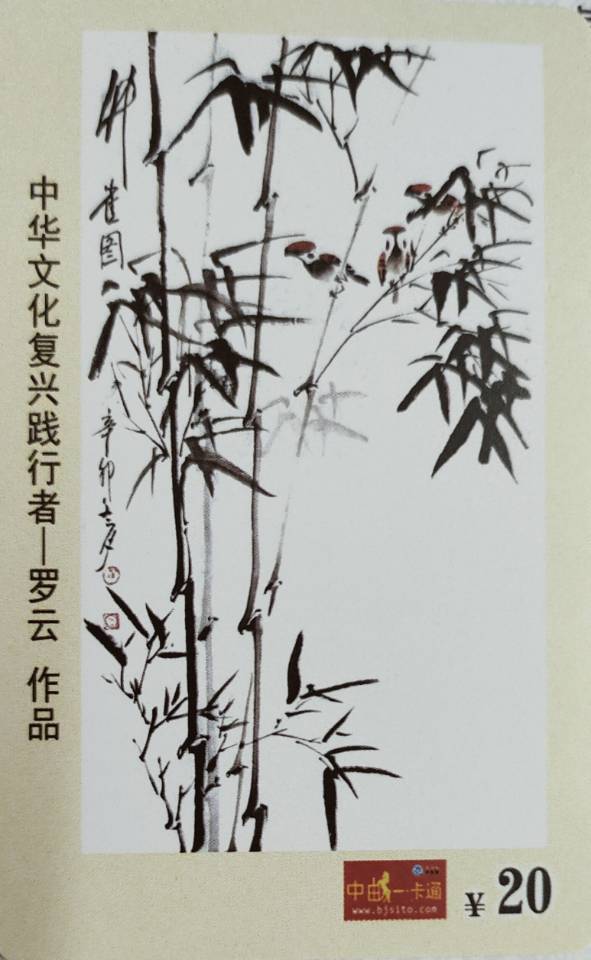 中华文化复兴践行者—罗云 作品
竹雀图
辛卯
中曲一卡通
www.bjsito.com
¥ 20